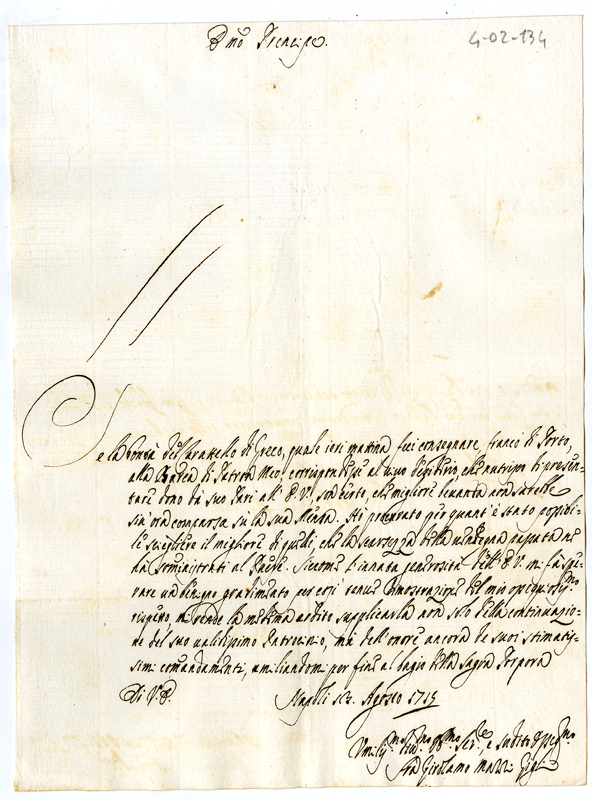 Emo Prencipe.
4-02-134
Se la bontà del Caratello di Greco, quale ieri mattina feci consegnare, franco di Porto,
alla di Patron Meo, corrispondesse al vivo desiderio, che nutrivo di presen=
tare dono da suo Pari all' E. V., son certo, che migliore bevanda non sarebbe
sin' ora comparsa sù la sua Mensa. Hò procurato però quant' è stato possibi=
le scegliere il migliore di quelli, che la scarsezza della vendegna passata ne
hà somministrati al Paese. Siccome l'innata generosità dell' E. V. mi fà spe=
rare un benigno gradimento per così tenue dimostrazione del mio
rispetto, mi rende la medema ardito supplicarla non solo della continuazio=
ne del suo validissimo Patrocinio, mà dell' onore ancora de suoi stimatis=
simi comandamenti, umiliandomi per fine al bagio della Sagra Porpora
Di V. E. Napoli Agosto 1715
Umilissmo e suddito
Frà Girolamo